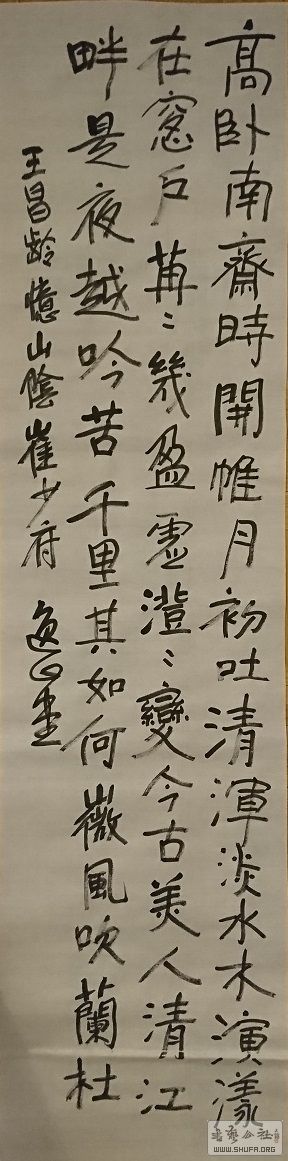 高卧南齋時開帷月初吐清渾淡水木演漾
在窓户苒〻幾盈虛澄〻變今古美人清江
畔是夜越吟苦千里其如何微風吹蘭杜
王昌龄憶山陰崔少府
WWW.SHUFA.ORG